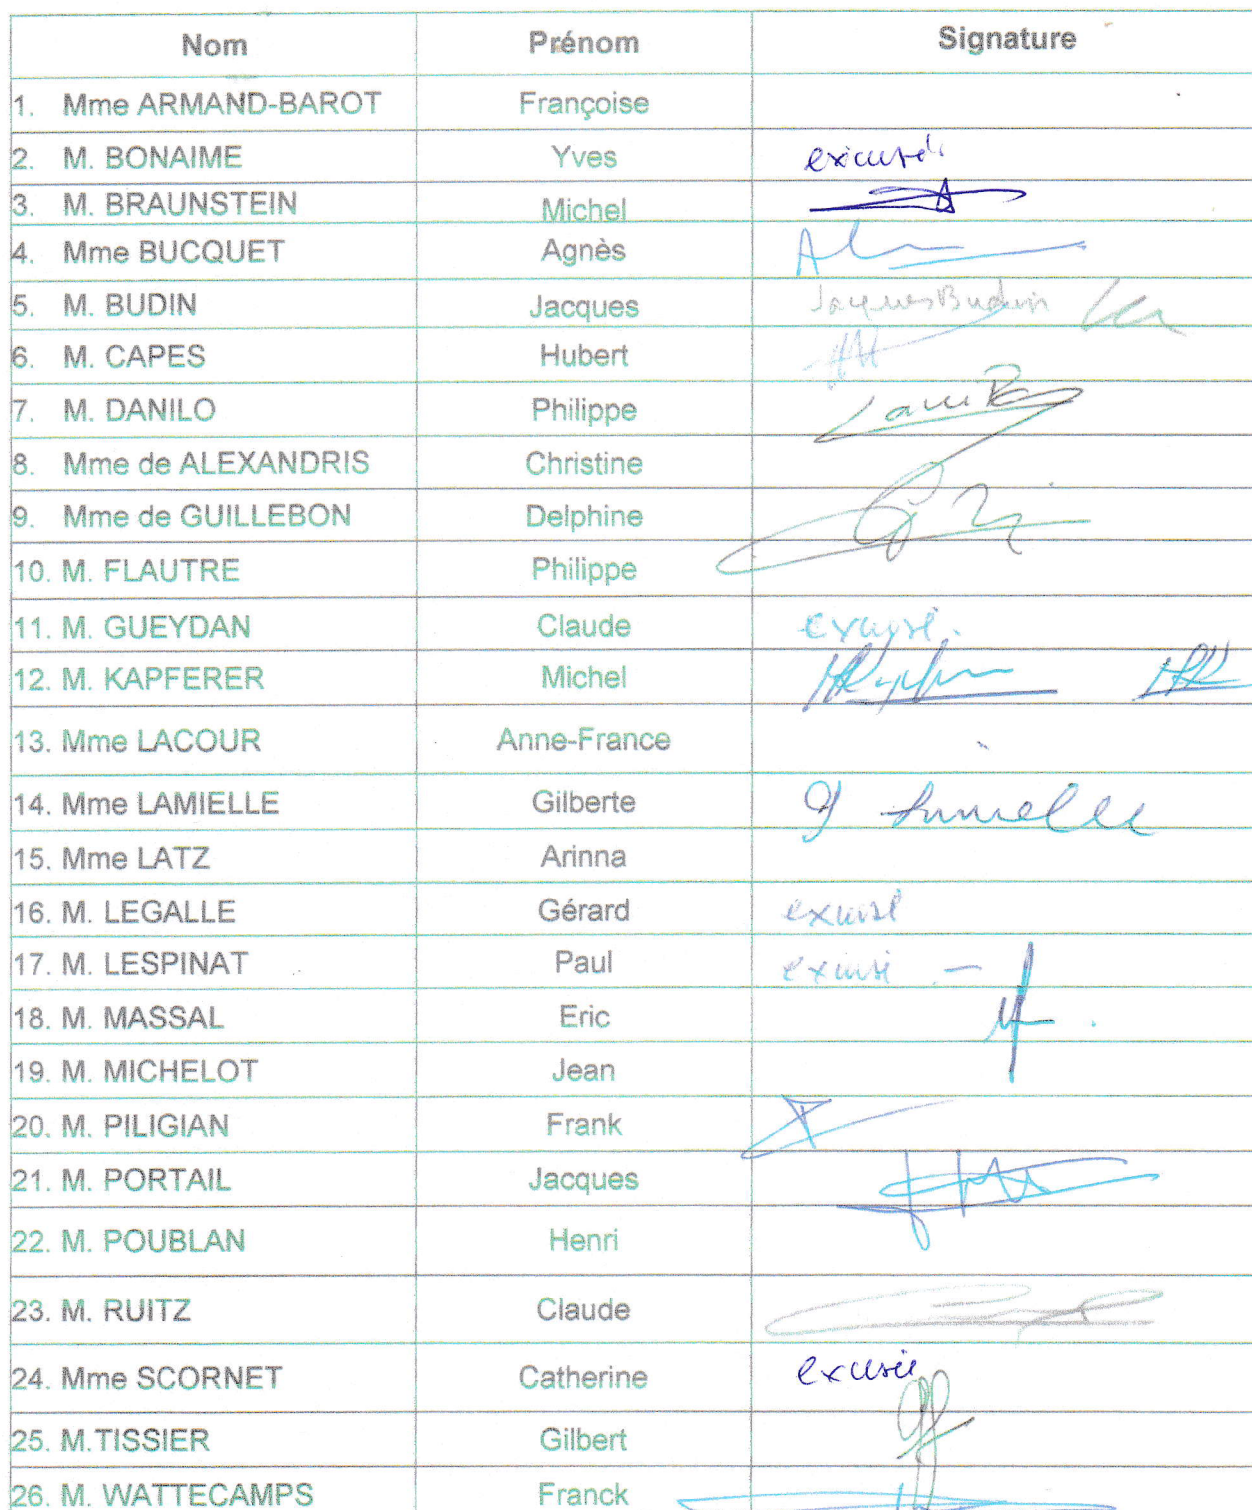 Nom Prénom Signature
1. Mme ARMAND-BAROT Françoise
2. M. BONAIME Yves excusé
3. M. BRAUNSTEIN Michel
4. Mme BUCQUET Agnès
5. M. BUDIN Jacques Jacques Budin
6. M. CAPES Hubert
7. M. DANILO Philippe
8. Mme de ALEXANDRIS Christine
9. Mme de GUILLEBON Delphine
10. M. FLAUTRE Philippe
11. M. GUEYDAN Claude excusé.
12. M. KAPFERER Michel
13. Mme LACOUR Anne-France
14. Mme LAMIELLE Gilberte
15. Mme LATZ Arinna
16. M. LEGALLE Gérard excusé
17. M. LESPINAT Paul excusé
18. M. MASSAL Eric
19. M. MICHELOT Jean
20. M. PILIGIAN Frank
21. M. PORTAIL Jacques
22. M. POUBLAN Henri
23. M. RUITZ Claude
24. Mme SCORNET Catherine excusée
25. M.TISSIER Gilbert
26. M. WATTECAMPS Franck